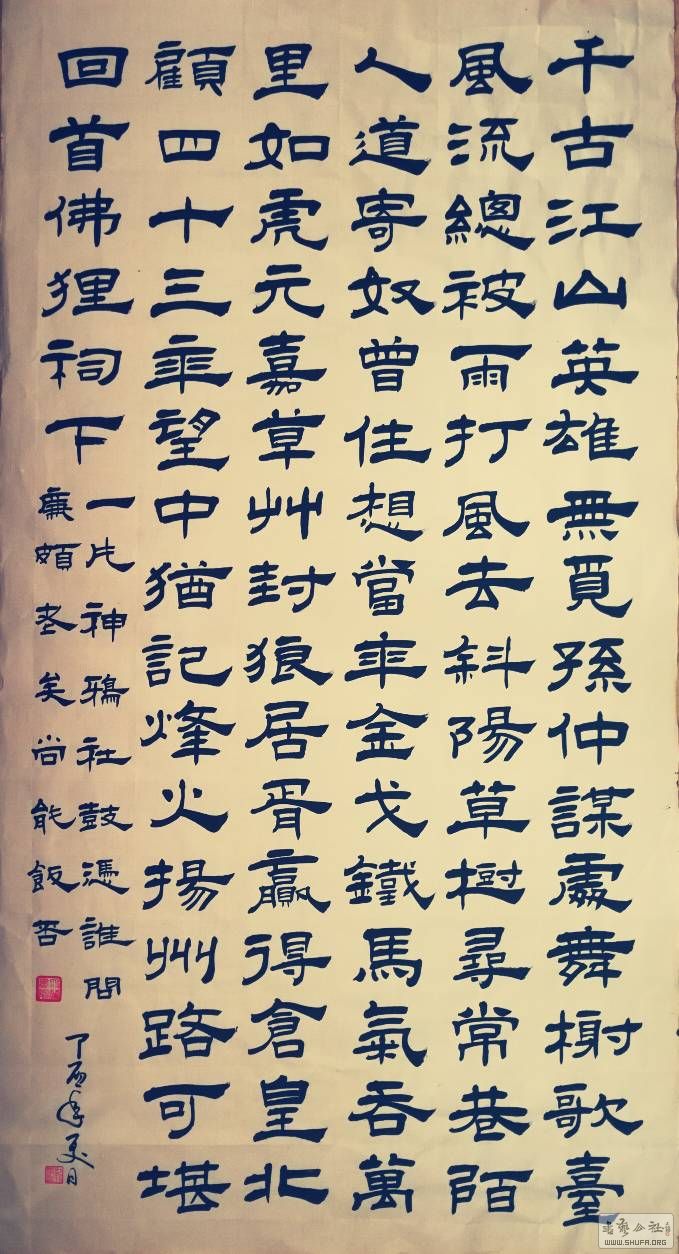 千古江山英雄無覓孫仲謀處舞榭歌臺
風流總被雨打風去斜陽草樹尋常巷陌
人道寄奴曾住想當年金戈鐵馬氣吞萬
里如虎元嘉草艸封狼居胥贏得倉皇北
顧四十三年望中猶記烽火揚州路可堪
回首佛狸祠下
一片神鴉社鼓憑誰問
廉頗老矣尚能飯否
丁酉年夏日
WWW.SHUFA.ORG